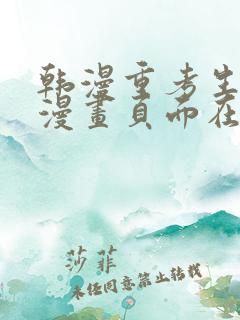 韩漫重考生
漫畫頁而在
莎菲
未经同意禁止转载